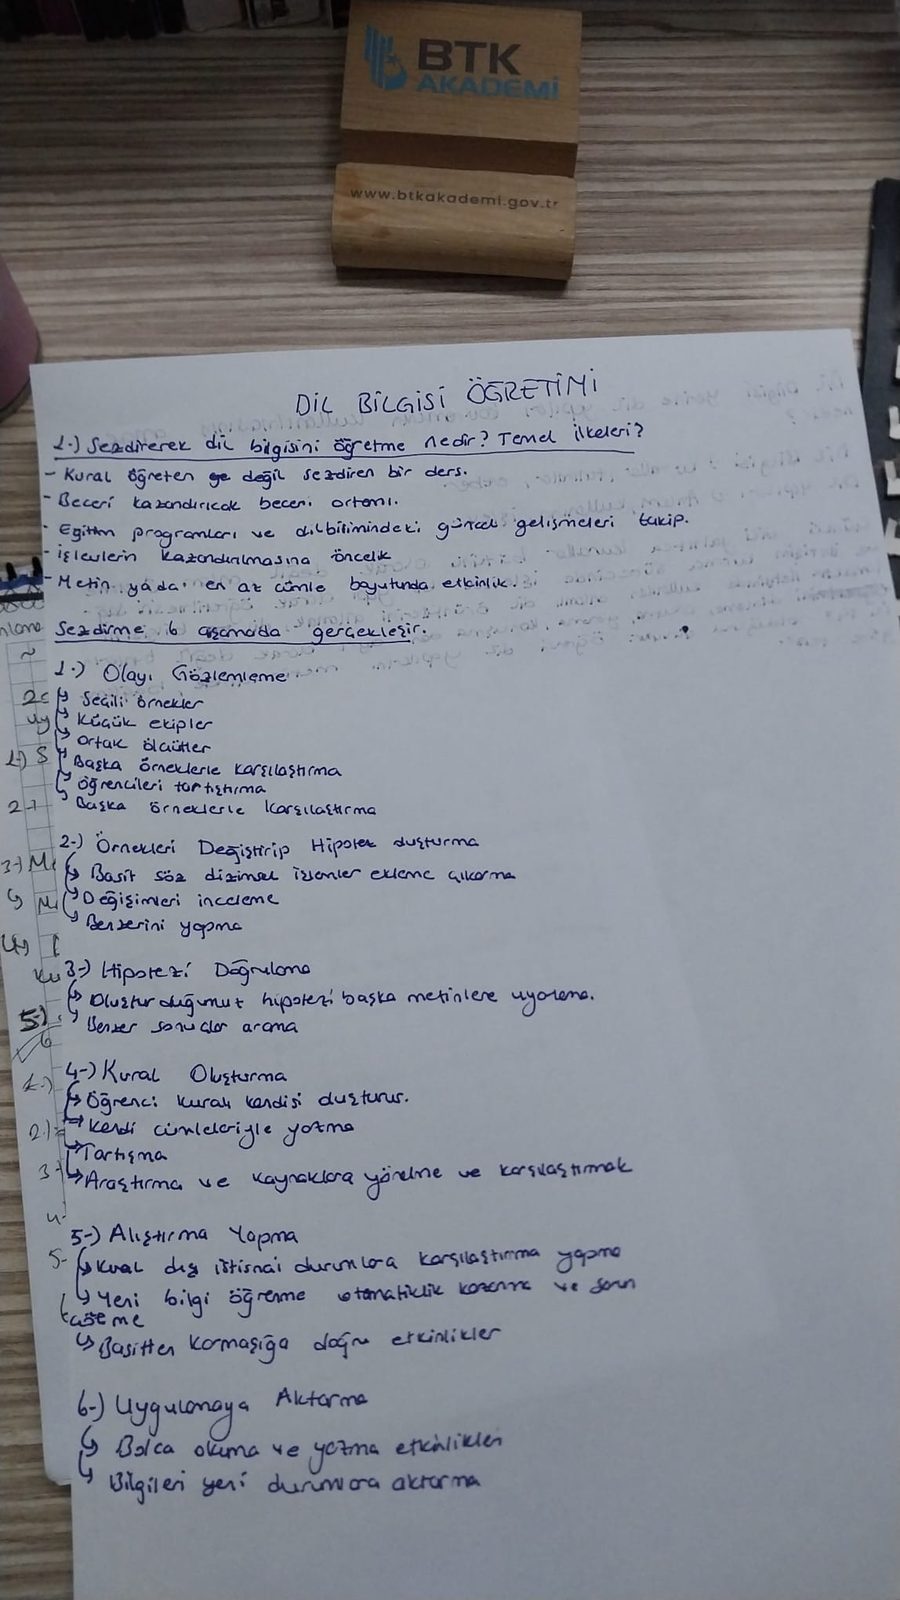 BTK
AKADEMİ
www.btkakademi.gov.tr
DİL BİLGİSİ ÖĞRETİMİ
1.) Sezdirerek dil bilgisini öğretme nedir? Temel İlkeleri?
- Kural öğreten değil sezdiren bir ders.
- Beceri kazandırıcak beceri ortamı.
- Eğitim programları ve dilbilimindeki güncel gelişmeleri takip.
- İşlevlerin kazandırılmasına öncelik
- Metin yada en az cümle boyutunda etkinlik.
Sezdirme 6 aşamada gerçekleşir.
1.) Olayı Gözlemleme
↳ Seçili örnekler
↳ Küçük ekipler
↳ Ortak ölçütler
↳ Başka örneklerle karşılaştırma
↳ Öğrencileri tartıştırma
↳ Başka örneklerle karşılaştırma
2-) Örnekleri Değiştirip Hipotez oluşturma
↳ Basit söz dizimsel işlemler ekleme çıkarma
↳ Değişimleri inceleme
↳ Benzerini yapma
3-) Hipotezi Doğrulama
↳ Oluşturduğumuz hipotezi başka metinlere uyarlama.
↳ Benzer sonuçlar arama
4-) Kural Oluşturma
↳ Öğrenci kuralı kendisi oluşturur.
↳ Kendi cümleleriyle yazma
↳ Tartışma
↳ Araştırma ve kaynaklara yönelme ve karşılaştırmak
5-) Alıştırma Yapma
↳ Kural dışı istisnai durumlara karşılaştırma yapma
↳ Yeni bilgi öğrenme otomatiklik kazanma ve sorun
çözme
↳ Basitten karmaşığa doğru etkinlikler
6-) Uygulamaya Aktarma
↳ Bolca okuma ve yazma etkinlikleri
↳ Bilgileri yeni durumlara aktarma